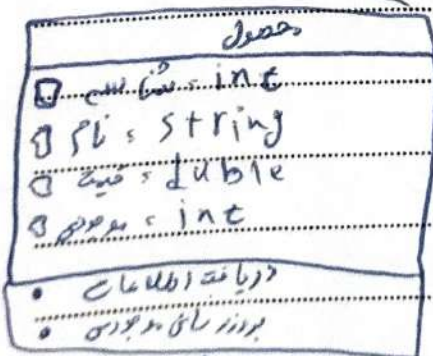 محصول
شناسه : int
نام : string
قیمت : duble
موجودی : int
دریافت اطلاعات
بروزرسانی موجودی